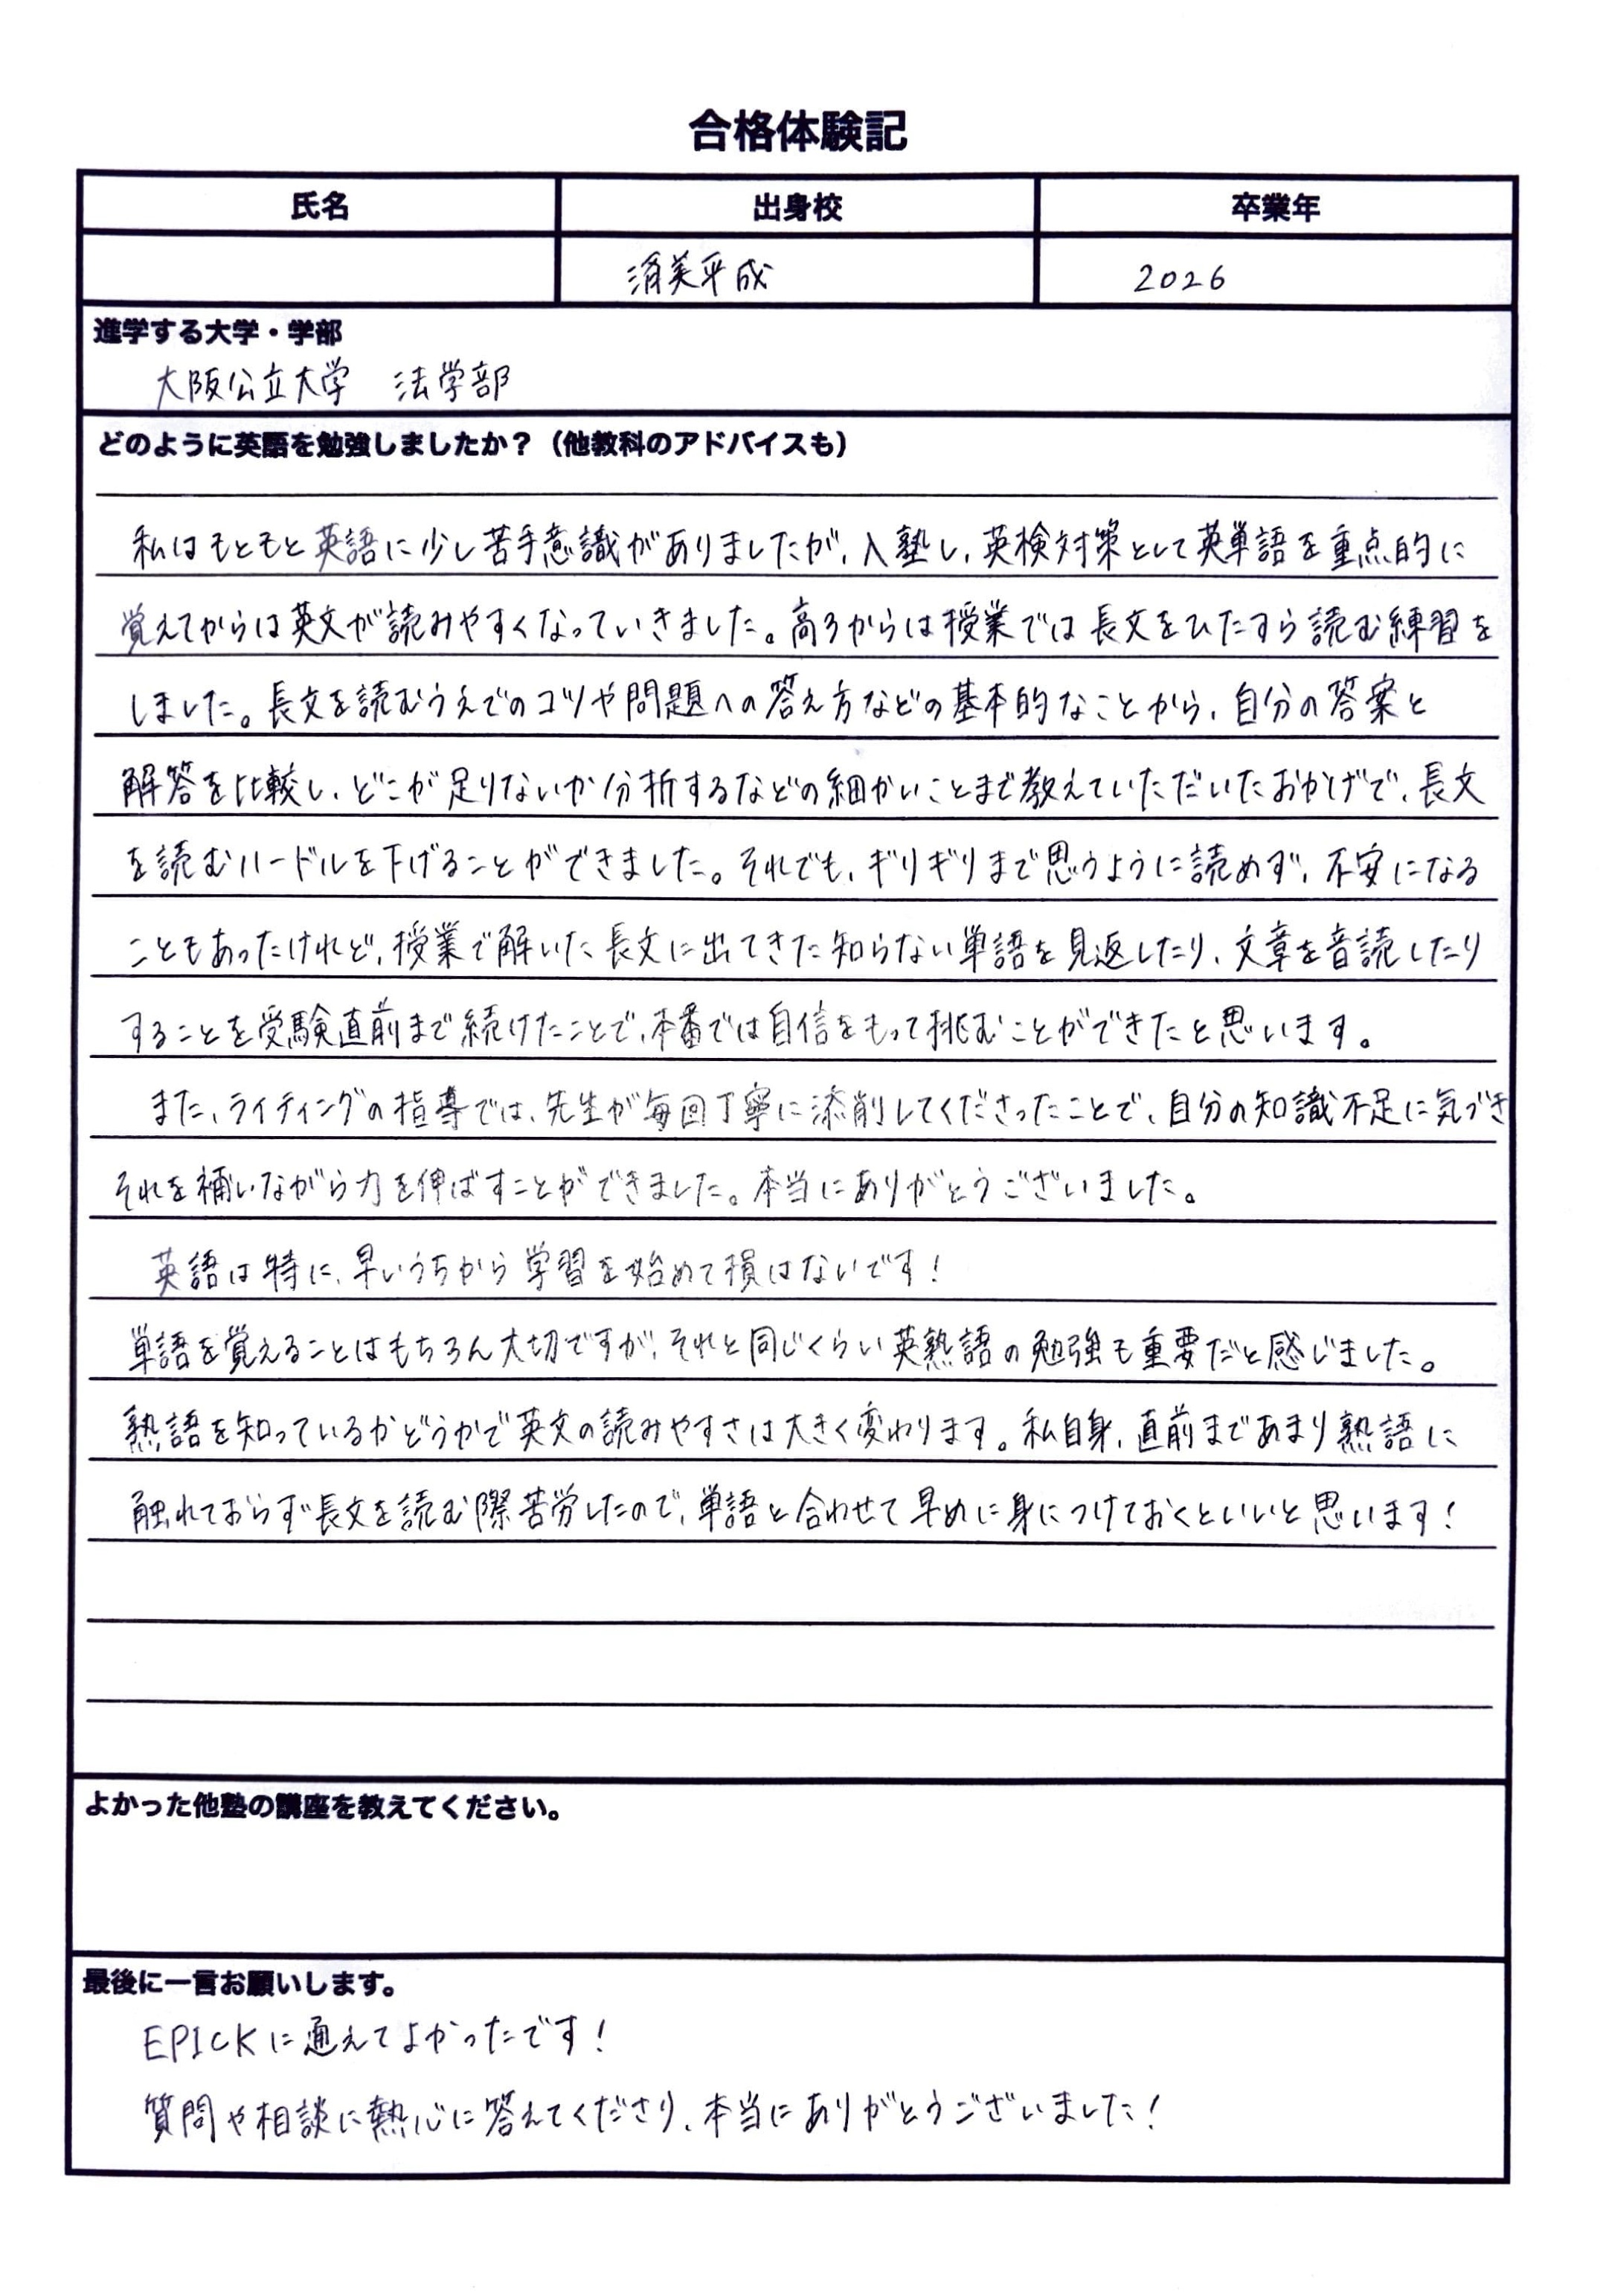 合格体験記
氏名 出身校 卒業年
済美平成 2026
進学する大学・学部
大阪公立大学 法学部
どのように英語を勉強しましたか？（他教科のアドバイスも）
私はもともと英語に少し苦手意識がありましたが、入塾し、英検対策として英単語を重点的に
覚えてからは英文が読みやすくなっていきました。高3からは授業では長文をひたすら読む練習を
しました。長文を読むうえでのコツや問題への答え方などの基本的なことから、自分の答案と
解答を比較し、どこが足りないか分析するなどの細かいことまで教えていただいたおかげで、長文
を読むハードルを下げることができました。それでも、ギリギリまで思うように読めず、不安になる
こともあったけれど、授業で解いた長文に出てきた知らない単語を見返したり、文章を音読したり
することを受験直前まで続けたことで、本番では自信をもって挑むことができたと思います。
また、ライティングの指導では、先生が毎回丁寧に添削してくださったことで、自分の知識不足に気づき
それを補いながら力を伸ばすことができました。本当にありがとうございました。
英語は特に、早いうちから学習を始めて損はないです！
単語を覚えることはもちろん大切ですが、それと同じくらい英熟語の勉強も重要だと感じました。
熟語を知っているかどうかで英文の読みやすさは大きく変わります。私自身、直前まであまり熟語に
触れておらず長文を読む際苦労したので、単語と合わせて早めに身につけておくといいと思います！
よかった他塾の講座を教えてください。
最後に一言お願いします。
EPICKに通えてよかったです！
質問や相談に熱心に答えてくださり、本当にありがとうございました！